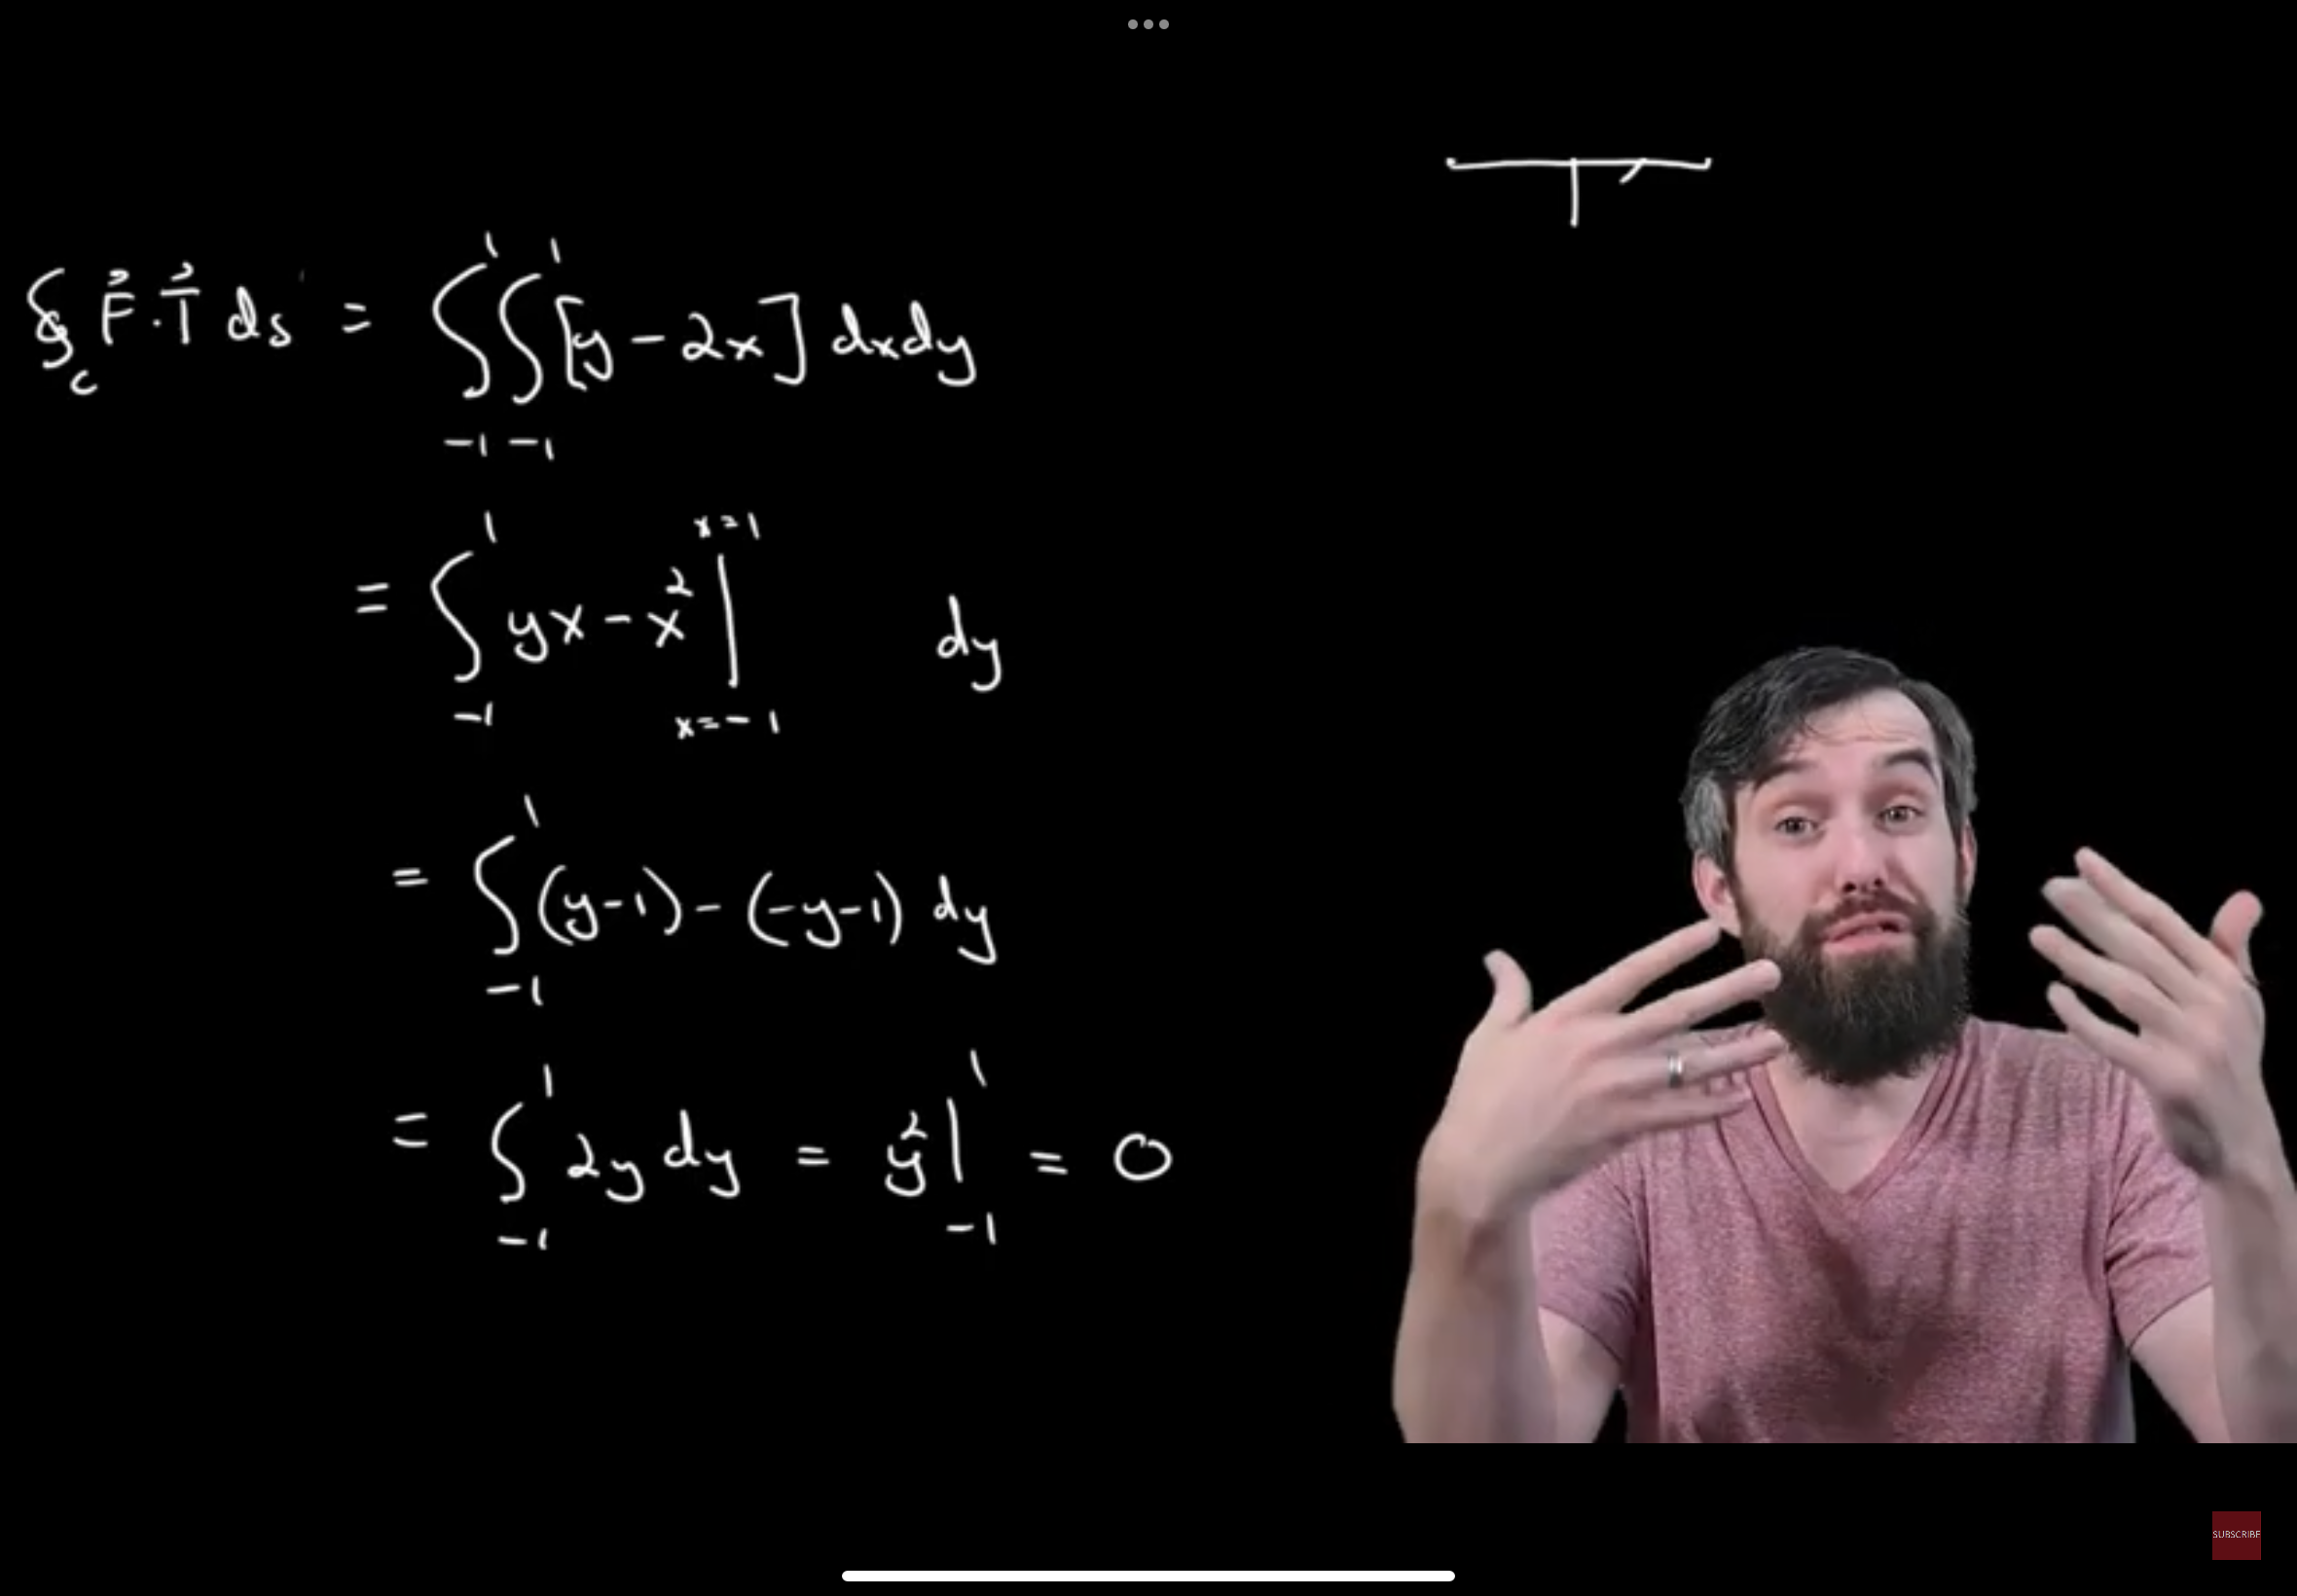 ∮_C F⃗ · T⃗ ds = ∫_{-1}^{1} ∫_{-1}^{1} [y - 2x] dx dy
= ∫_{-1}^{1} yx - x² |_{x=-1}^{x=1} dy
= ∫_{-1}^{1} (y-1) - (-y-1) dy
= ∫_{-1}^{1} 2y dy = y² |_{-1}^{1} = 0
SUBSCRIBE